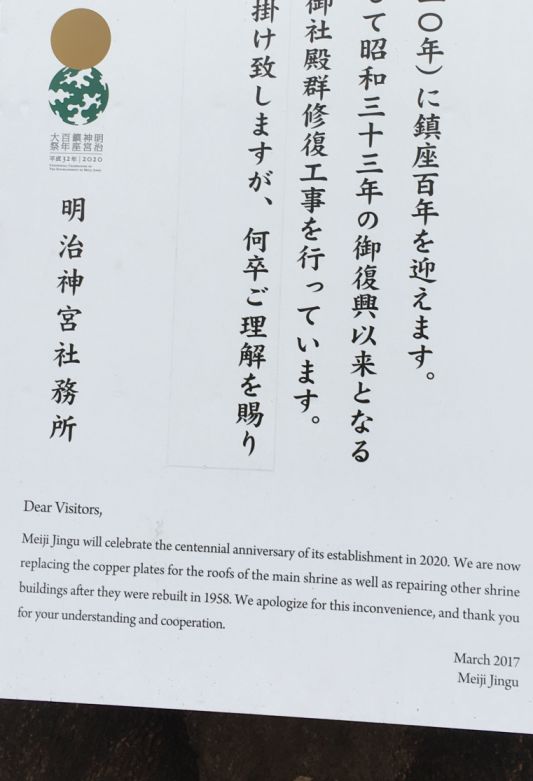 〇年）に鎮座百年を迎えます。
て昭和三十三年の御復興以来となる
御社殿群修復工事を行っています。
掛け致しますが、何卒ご理解を賜り
明治
神宮
鎮座
百年
大祭
平成32年 | 2020
明治神宮社務所
Dear Visitors,
Meiji Jingu will celebrate the centennial anniversary of its establishment in 2020. We are now
replacing the copper plates for the roofs of the main shrine as well as repairing other shrine
buildings after they were rebuilt in 1958. We apologize for this inconvenience, and thank you
for your understanding and cooperation.
March 2017
Meiji Jingu